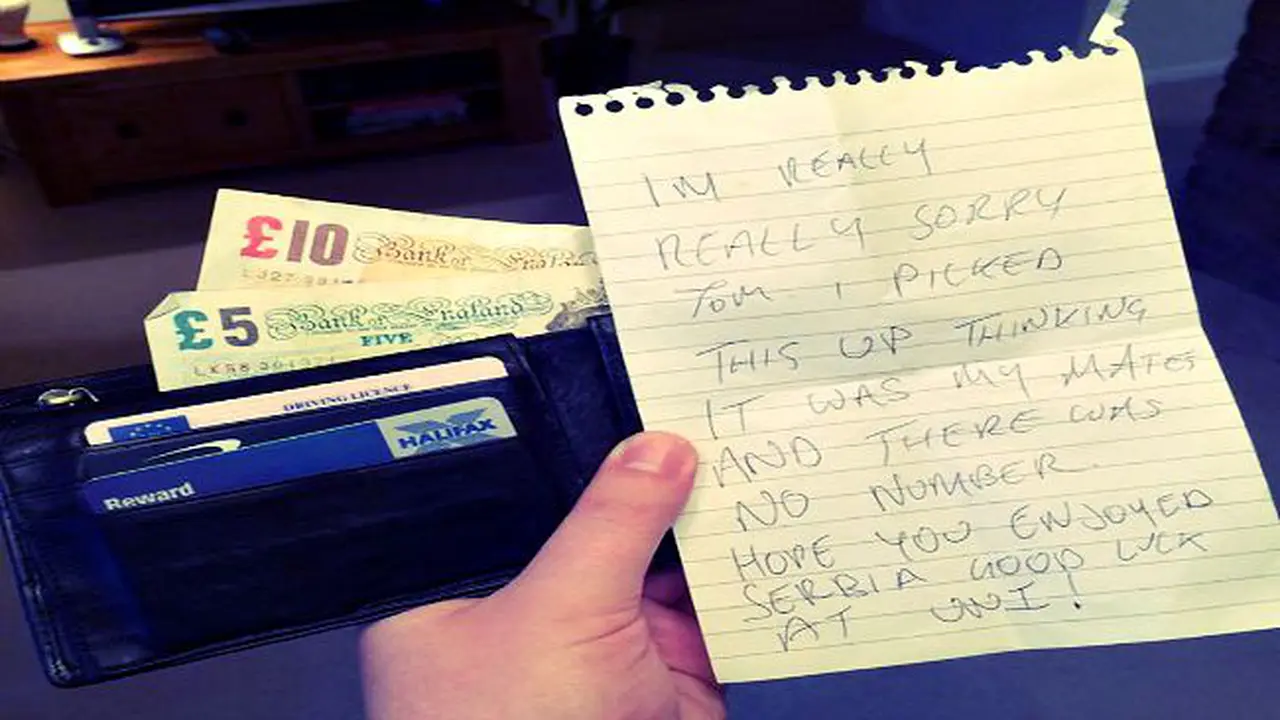 £10 Bank of England
LJ27
£5 Bank of England
FIVE
LK58
DRIVING LICENCE
HALIFAX
Reward
IM REALLY
REALLY SORRY
TOM I PICKED
THIS UP THINKING
IT WAS MY MATES
AND THERE WAS
NO NUMBER.
HOPE YOU ENJOYED
SERBIA GOOD LUCK
AT UNI!